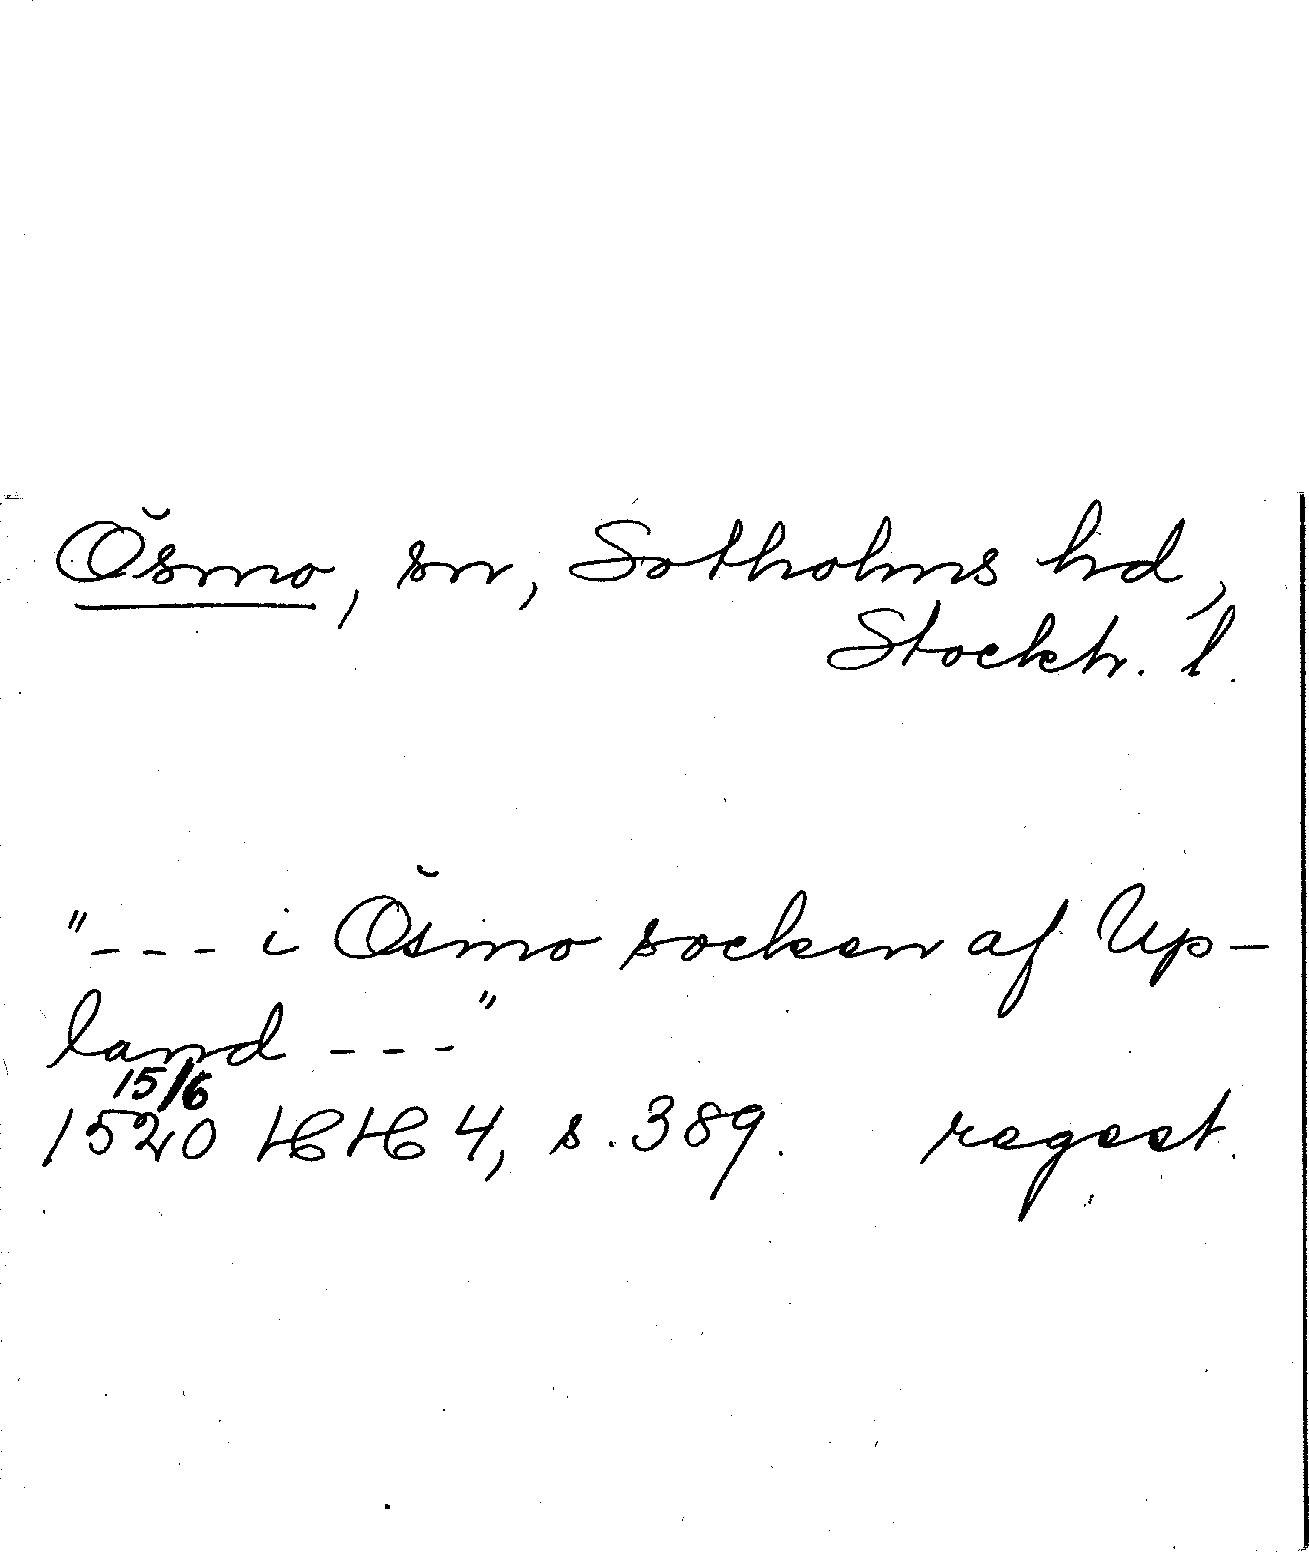 Ösmo, sn, Sotholms hd,
Stockh. l.
"--- i Ösmo socken af Up-
land ---"
15/6
1520 HH 4, s. 389. regest.